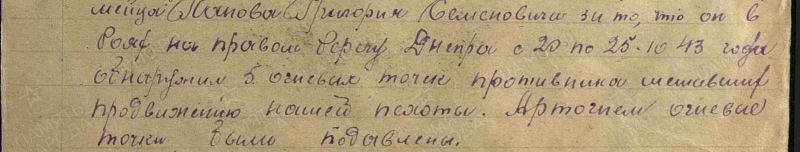 мейца Попова Григория Семеновича за то, что он в
боях на правом берегу Днепра с 20 по 25.10 43 года
обнаружил 5 огневых точек противника мешавших
продвижению нашей пехоты. Артогнем огневые
точки были подавлены.